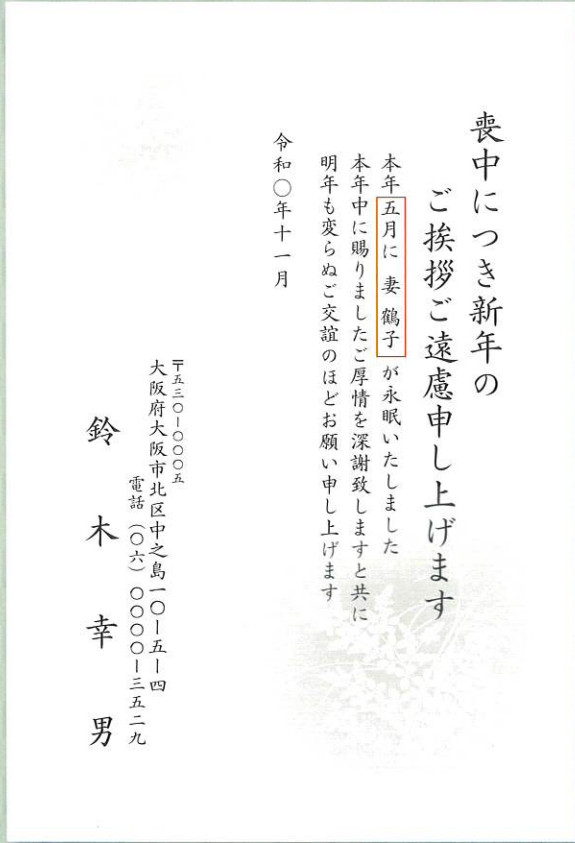 喪中につき新年の
ご挨拶ご遠慮申し上げます
本年五月に 妻 鶴子 が永眠いたしました
本年中に賜りましたご厚情を深謝致しますと共に
明年も変らぬご交誼のほどお願い申し上げます
令和〇年十一月
〒五三〇-〇〇〇五
大阪府大阪市北区中之島一〇-五-四
電話(〇六)〇〇〇〇-三五二九
鈴木幸男